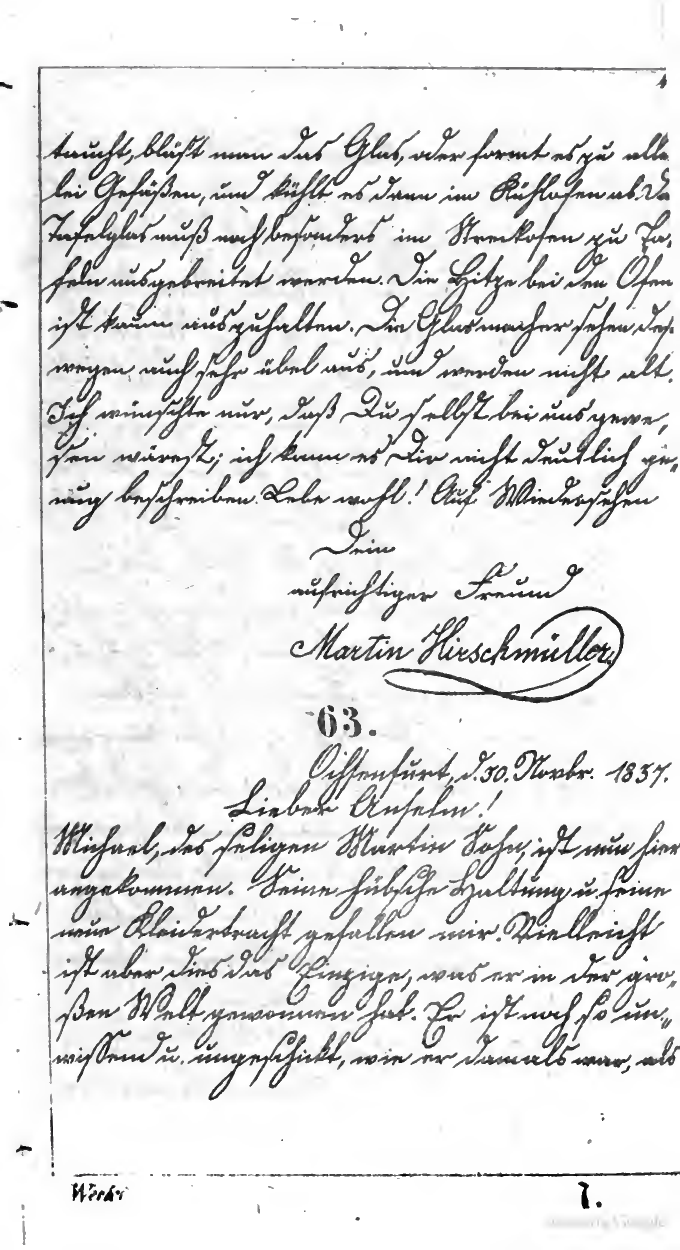 taucht, bläst man das Glas, oder formt es zu aller
lei Gefäßen, und kühlt es dann im Kühlofen ab. Da
Tafelglas muß noch besonders im Streckofen zu Ta-
feln ausgebreitet werden. Die Hitze bei den Öfen
ist kaum auszuhalten. Die Glasmacher sehen des-
wegen auch sehr übel aus, und werden nicht alt.
Ich wünschte nur, daß Du selbst bei uns gewe-
sen wärest; ich kann es Dir nicht deutlich ge-
nug beschreiben. Lebe wohl! Auf Wiedersehen
Dein
aufrichtiger Freund
Martin Hirschmüller.
63.
Ochsenfurt, d. 30. Novbr. 1837.
Lieber Anselm!
Michael, des seligen Martin Sohn, ist nun hier
angekommen. Seine hübsche Haltung u. seine
neue Kleidertracht gefallen mir. Vielleicht
ist aber dies das Einzige, was er in der gro-
ßen Welt gewonnen hat. Er ist noch so un-
wissend u. ungeschickt, wie er damals war, als
7.